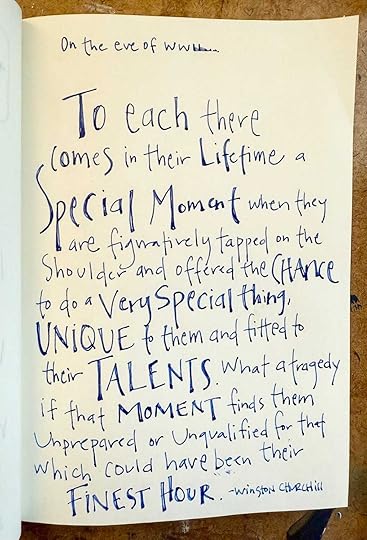 On the eve of WWII....
To each there
comes in their Lifetime a
Special Moment when they
are figuratively tapped on the
Shoulder and offered the CHANCE
to do a Very Special thing,
UNIQUE to them and fitted to
their TALENTS. What a tragedy
if that MOMENT finds them
Unprepared or Unqualified for that
which could have been their
FINEST HOUR. -Winston CHURCHill